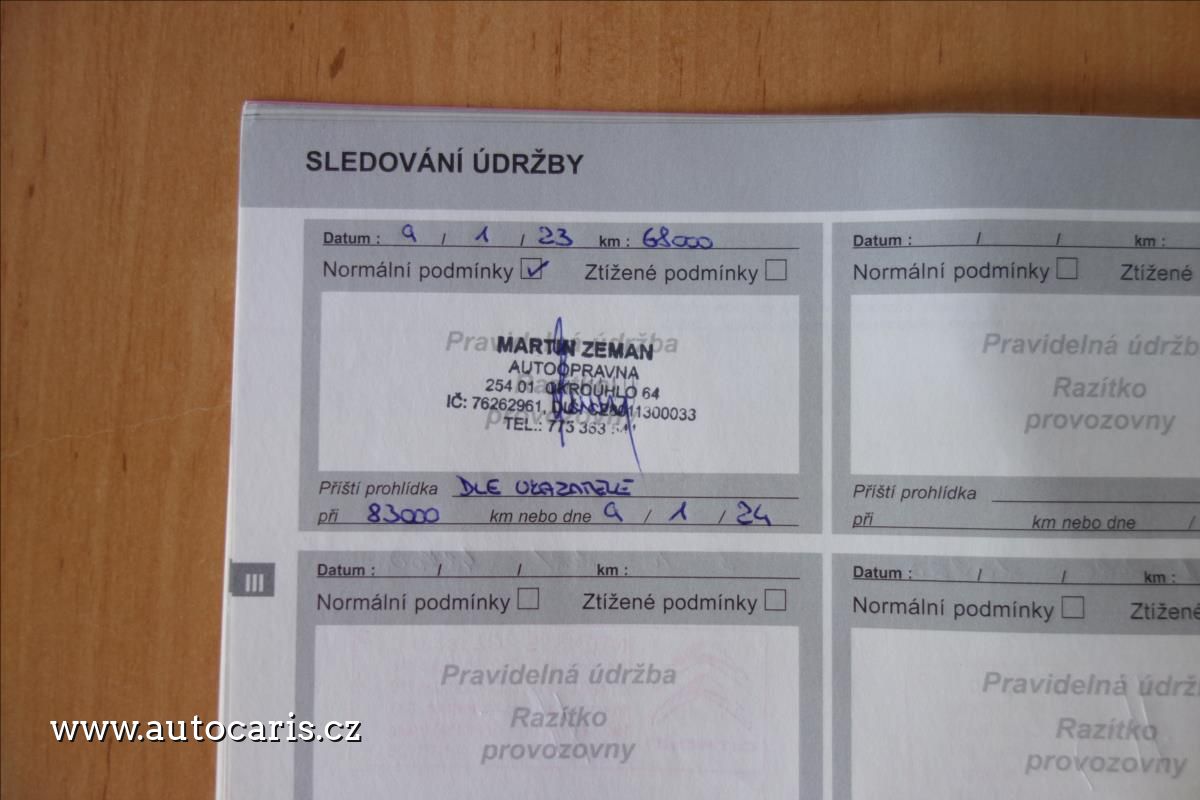 SLEDOVÁNÍ ÚDRŽBY
Datum : 9 / 1 / 23 km : 68000
Normální podmínky ☑ Ztížené podmínky ☐
Pravidelná údržba
MARTIN ZEMAN
AUTOOPRAVNA
254 01 OKROUHLO 64
IČ: 76262961,
provozovny
TEL.: 773 353
Příští prohlídka DLE UKAZATELE
při 83000 km nebo dne 9 / 1 / 24
Datum : / / km :
Normální podmínky ☐ Ztížené
Pravidelná
Razítko
provozovny
Příští prohlídka
při km nebo dne /
III
Datum : / / km :
Normální podmínky ☐ Ztížené podmínky ☐
Pravidelná údržba
Razítko
provozovny
Datum : / / km :
Normální podmínky ☐
Pravidelná
Razítko
provozovny
www.autocaris.cz